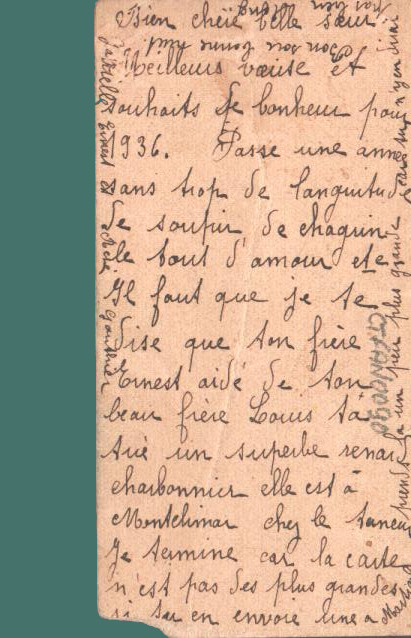 Bien chère belle sœur
Meilleurs vœuse et
souhaits de bonheur pour
1936. Passe une anné
sans trop de languitude
de soupir de chagrin
le tout d'amour ete
Il faut que je te
dise que ton frère
Ernest aidé de ton
beau frère Louis ta
tué un superbe renar
charbonnier elle est à
Montelimar chez le taneur
Je termine car la carte
n'est pas des plus grandes
si tu en envoie une a
prends la un peu plus grande
Ernest et
Gauthier
Bon soir bonne nuit